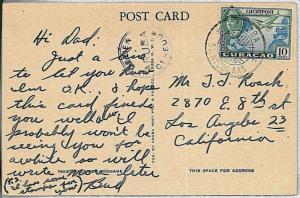 POST CARD
LUCHTPOST
CURAÇAO
10
Hi Dad!
Just a
to let you know
I'm O.K. I hope
this card finds
you well. I
probably won't be
seeing you for
awhile so will
write more later
Bud
P.S.
Mr. T. J. Roach
2870 E. 8th st
Los Angeles 23
California
THIS SPACE FOR ADDRESS